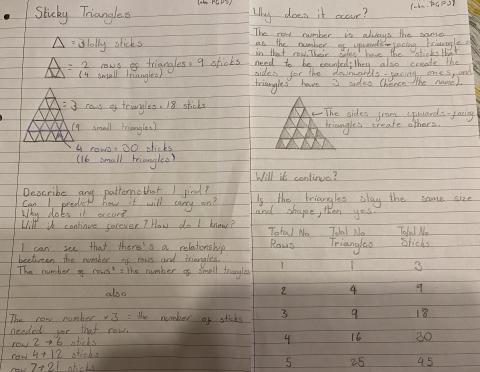 Sticky Triangles
= 3 lolly sticks
= 2 rows of triangles = 9 sticks
(4 small triangles)
= 3 rows of triangles = 18 sticks
(9 small triangles)
4 rows = 30 sticks
(16 small triangles)
Describe any patterns that I find?
Can I predict how it will carry on?
Why does it occur?
Will it continue forever? How do I know?
I can see that there's a relationship
between the number of rows and triangles.
The number of rows² = the number of small triangles
also
The row number × 3 = the number of sticks
needed for that row.
row 2 → 6 sticks
row 4 → 12 sticks
row 7 → 21 sticks
Why does it occur?
The row number is always the same
as the number of upwards-facing triangles
in that row. Their sides have the sticks that
need to be counted; they also create the
sides for the downwards-facing ones, and
triangles have 3 sides (hence the name).
The sides from upwards-facing
triangles create others.
Will it continue?
If the triangles stay the same size
and shape, then yes.
Total No. Total No. Total No.
Rows Triangles Sticks
1 1 3
2 4 9
3 9 18
4 16 30
5 25 45